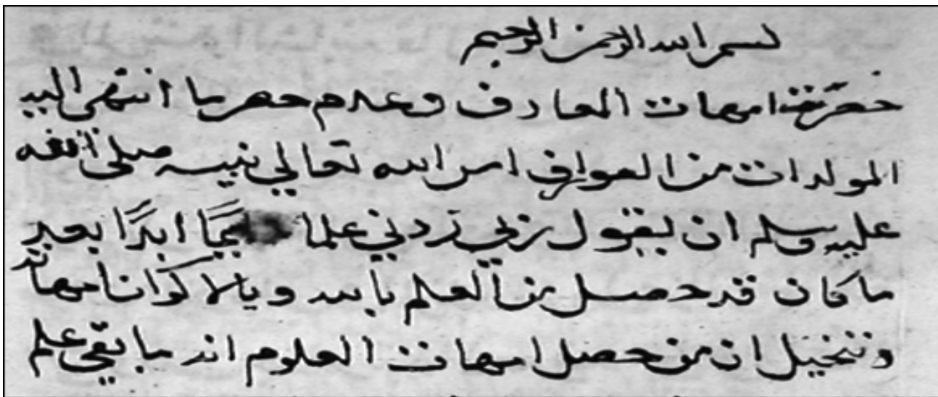 بسم الله الرحمن الرحيم
حضرة امهات المعارف وعدم حصر ما انتهى اليه
المولدات من العوارف امر الله تعالى نبيه صلى الله
عليه وسلم ان يقول رب زدني علما ابدًا بعد
ما كان قد حصل من العلم بالله وبالاكوان امهاته
ونتخيل ان من حصل امهات العلوم انه ما بقي علم